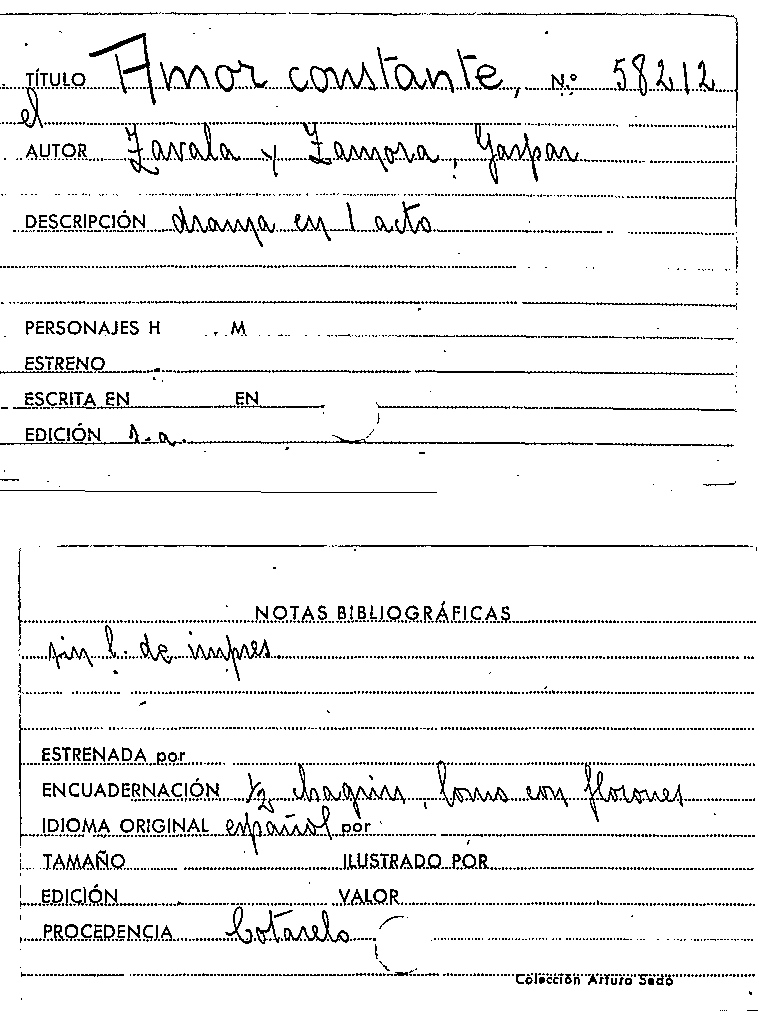 TÍTULO Amor constante, N.º 58212
el
AUTOR Zavala y Zamora, Gaspar
DESCRIPCIÓN drama en 1 acto
PERSONAJES H M
ESTRENO
ESCRITA EN EN
EDICIÓN s.a.
NOTAS BIBLIOGRÁFICAS
sin l. de impres.
ESTRENADA por
ENCUADERNACIÓN 1/2 chagrin, lomo con florones
IDIOMA ORIGINAL español por
TAMAÑO ILUSTRADO POR
EDICIÓN VALOR
PROCEDENCIA Cotarelo
Colección Arturo Sedó